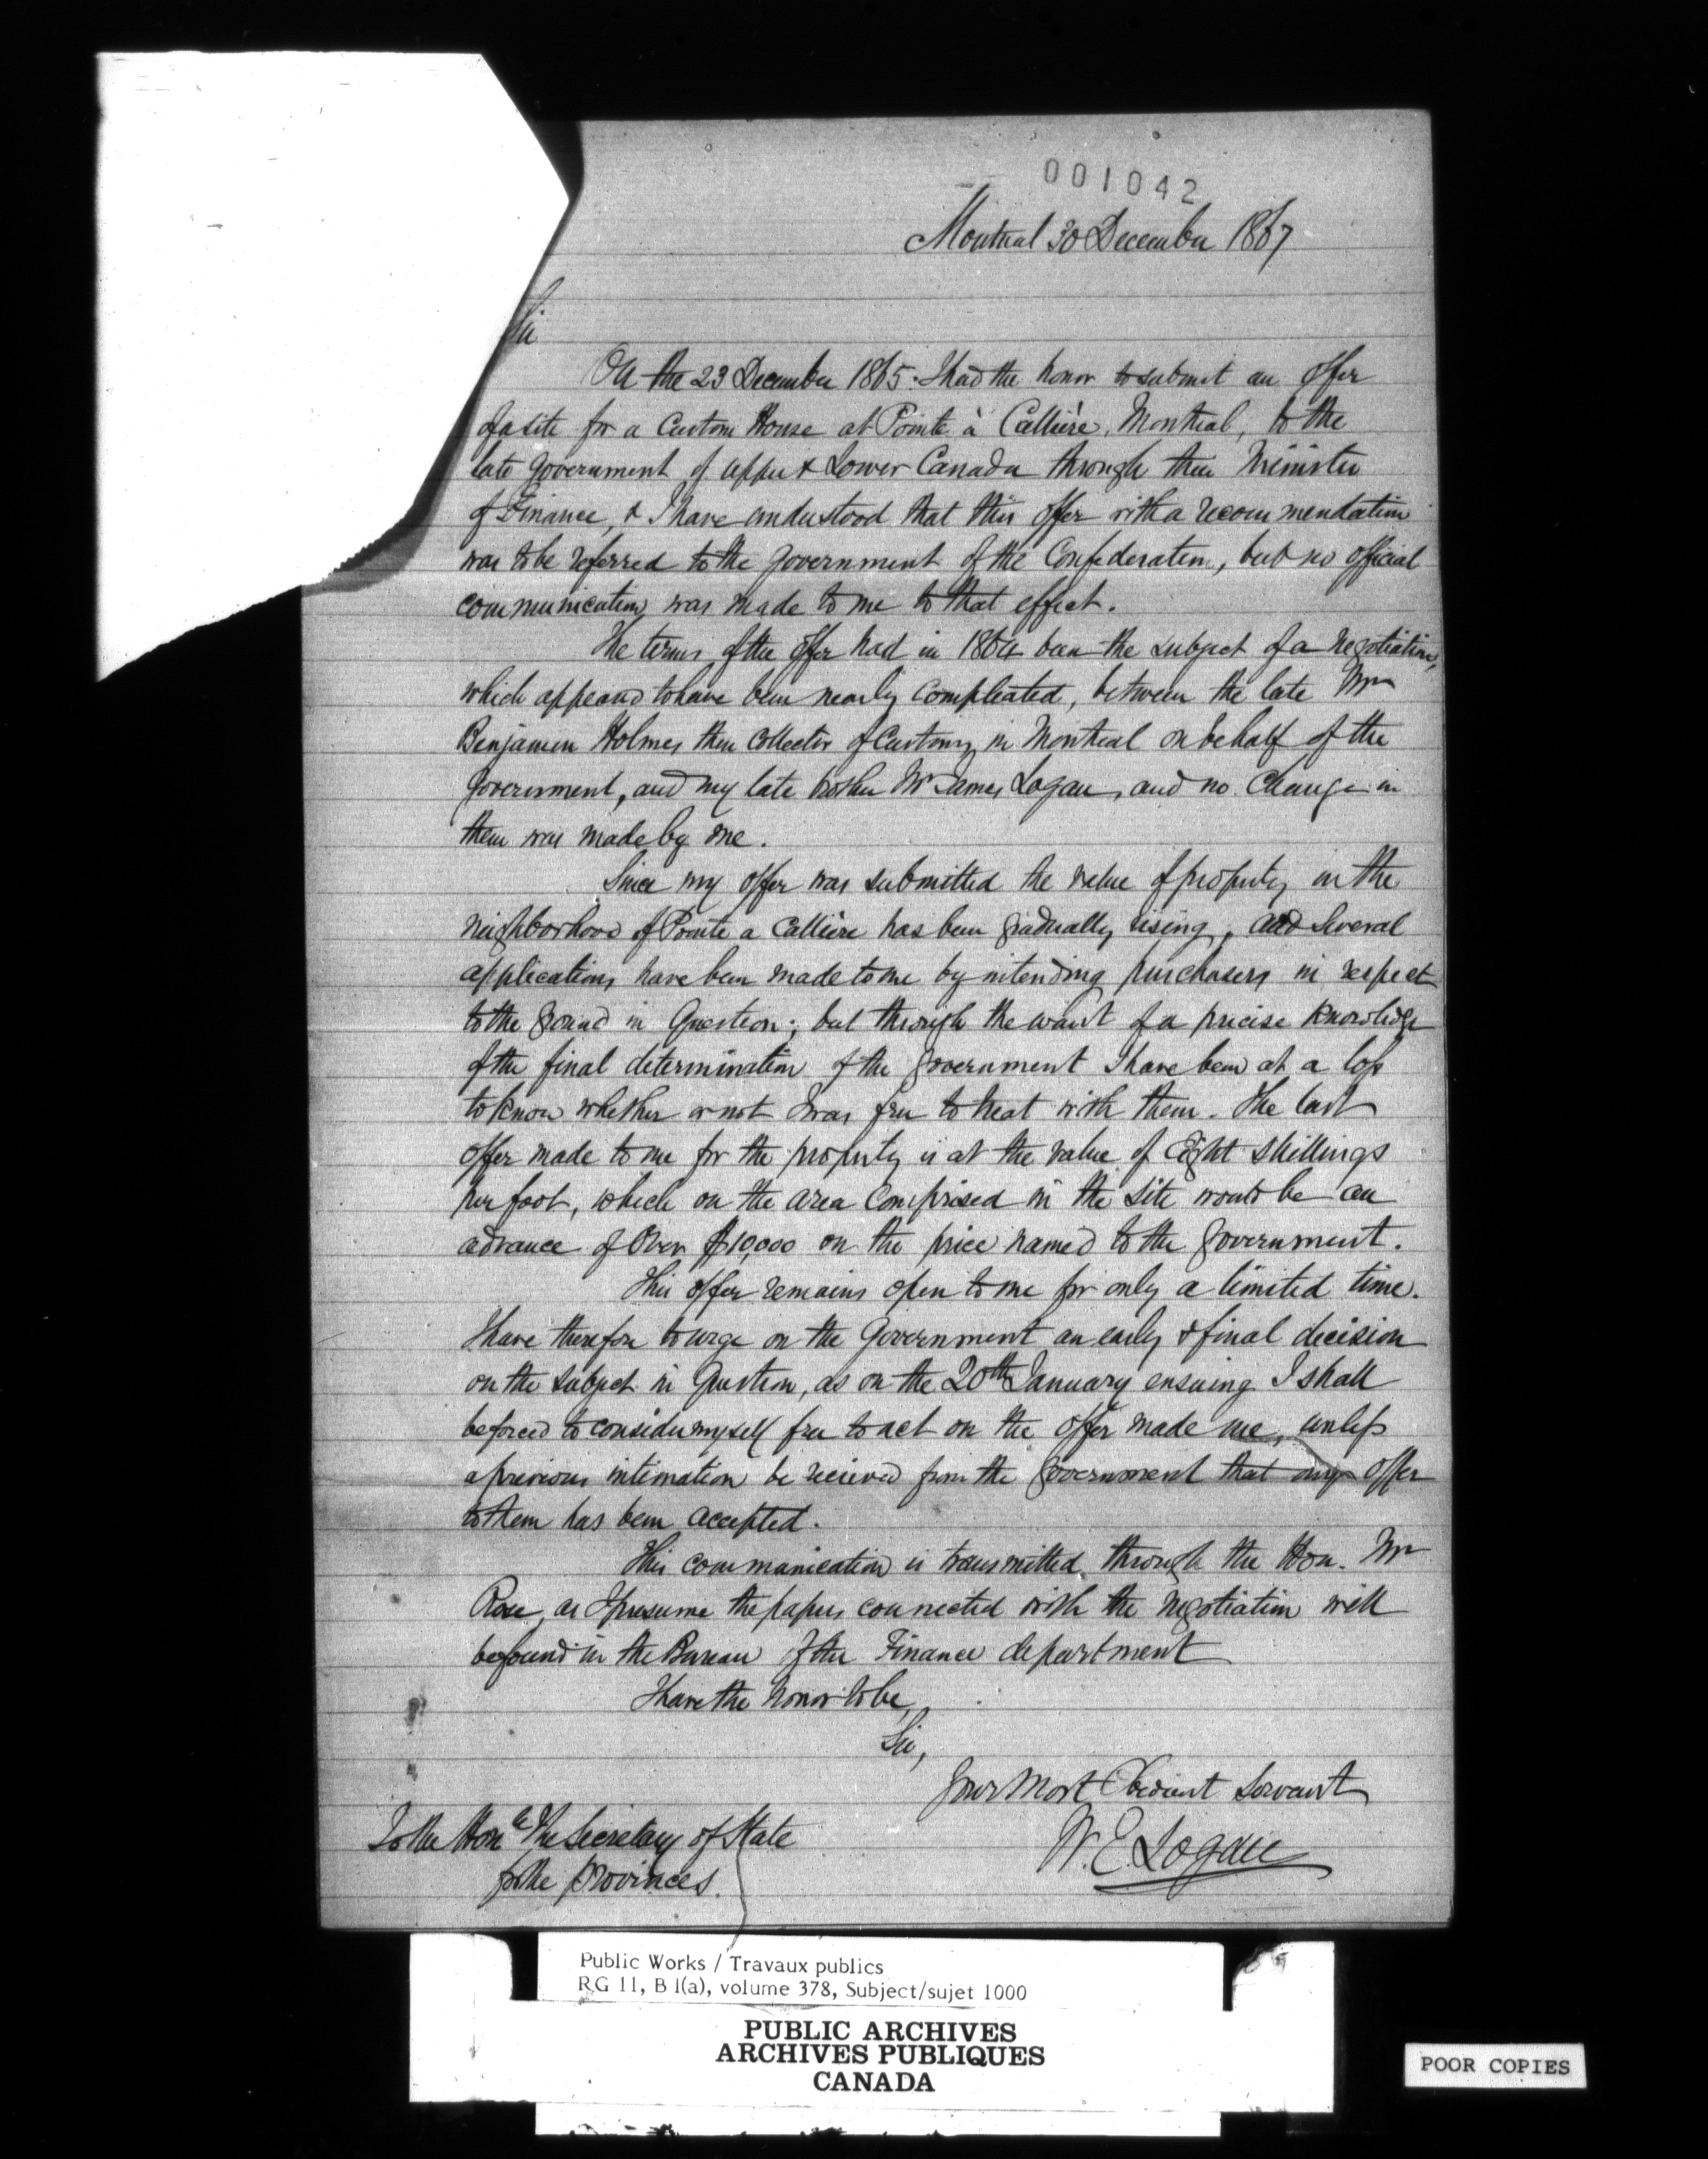 001042
Montreal 30 December 1867
Sir
On the 23 December 1865. I had the honor to submit an offer
of a site for a Custom House at Pointe à Callière, Montreal, to the
late Government of Upper & Lower Canada through their Minister
of Finance, & I have understood that this offer with a recommendation
was to be referred to the Government of the Confederation, but no official
communication was made to me to that effect.
The terms of the offer had in 1864 been the subject of a negotiation,
which appeared to have been nearly compleated, between the late Mr
Benjamin Holmes then Collector of Customs in Montreal on behalf of the
Government, and my late brother Mr James Logan, and no change in
them was made by me.
Since my offer was submitted the value of property in the
neighborhood of Pointe a Callière has been gradually rising, and several
applications have been made to me by intending purchasers in respect
to the ground in question; but through the want of a precise knowledge
of the final determination of the Government I have been at a loss
to know whether or not I was free to treat with them. The last
offer made to me for the property is at the value of eight shillings
per foot, which on the area comprised in the site would be an
advance of over $10,000 on the price named to the Government.
This offer remains open to me for only a limited time.
I have therefore to urge on the Government an early & final decision
on the subject in question, as on the 20th January ensuing I shall
be forced to consider myself free to act on the offer made me, unless
a previous intimation be recieved from the Government that my offer
to them has been accepted.
This communication is transmitted through the Hon. Mr
Rose, as I presume the papers connected with the negotiation will
be found in the Bureau of the Finance department
I have the honor to be,
Sir,
Your Most Obedient Servant
W. E. Logan
To the Honble The Secretary of State
for the Provinces.
Public Works / Travaux publics
RG 11, B 1(a), volume 378, Subject/sujet 1000
PUBLIC ARCHIVES
ARCHIVES PUBLIQUES
CANADA
POOR COPIES